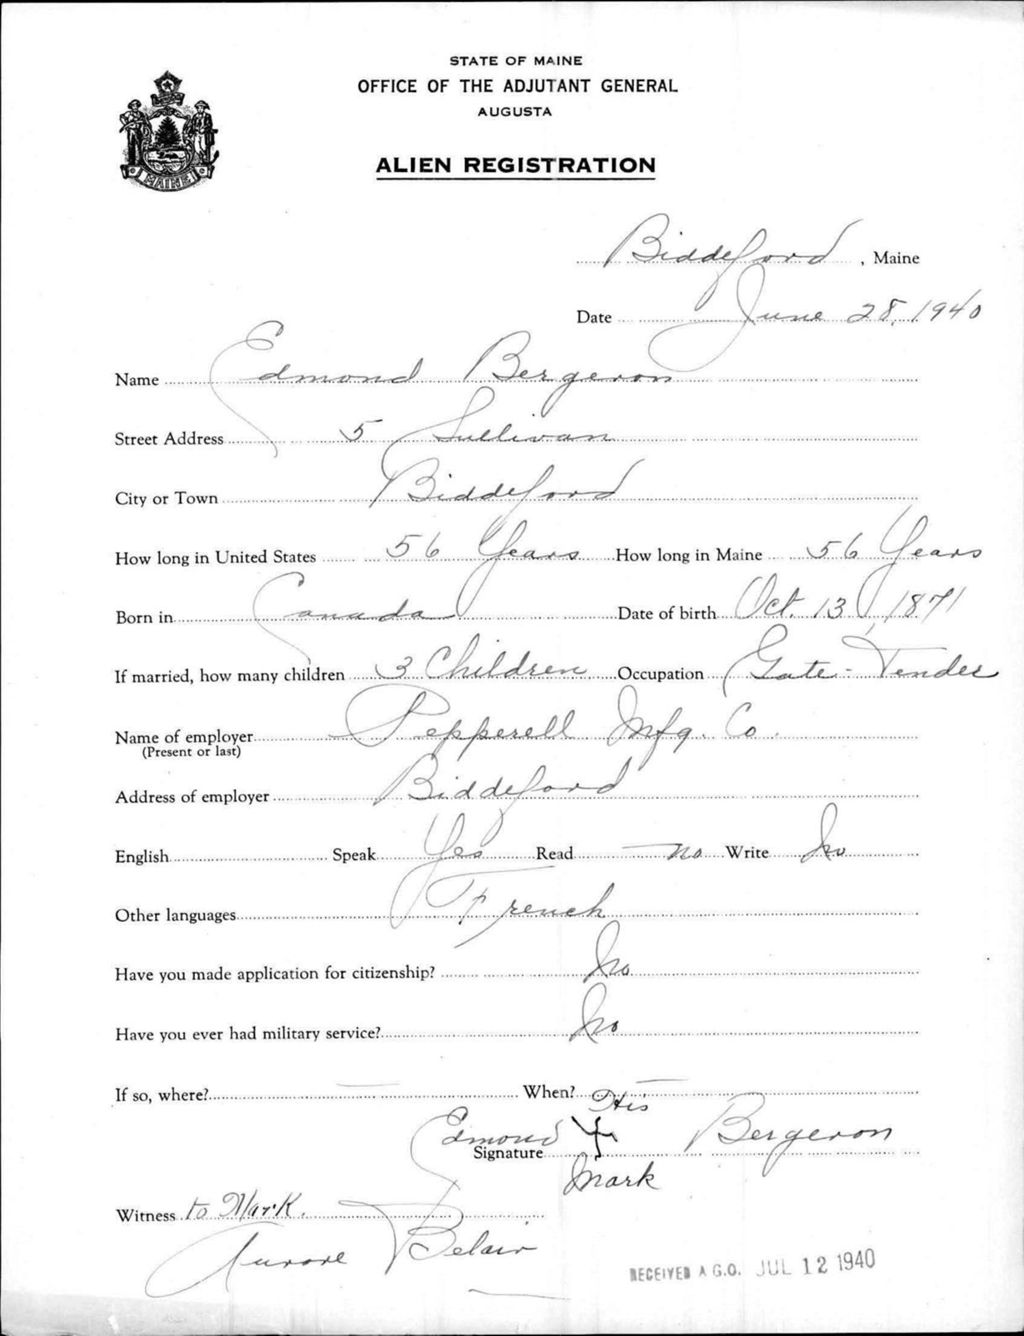 STATE OF MAINE
OFFICE OF THE ADJUTANT GENERAL
AUGUSTA
ALIEN REGISTRATION
MAINE
Biddeford, Maine
Date June 28, 1940
Name Edmond Bergeron
Street Address 5 Sullivan
City or Town Biddeford
How long in United States 56 Years How long in Maine 56 Years
Born in Canada Date of birth Oct. 13, 1871
If married, how many children 3 Children Occupation Gate-Tender
Name of employer Pepperell Mfg. Co.
(Present or last)
Address of employer Biddeford
English Speak Yes Read no Write No
Other languages French
Have you made application for citizenship? No
Have you ever had military service? No
If so, where? — When? —
His
Signature Edmond X Bergeron
Mark
Witness to Mark.
Aurore Belair
RECEIVED A.G.O. JUL 12 1940